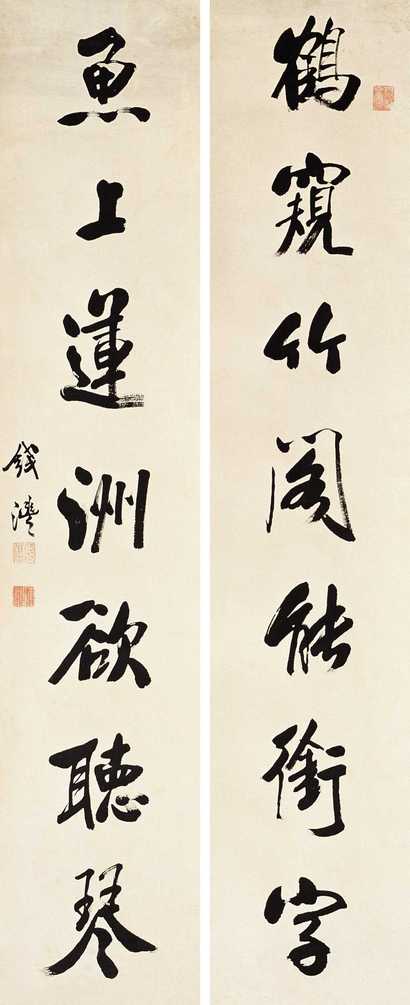 鶴窺竹阁能衔字
魚上蓮洲欲聽琴
錢灃